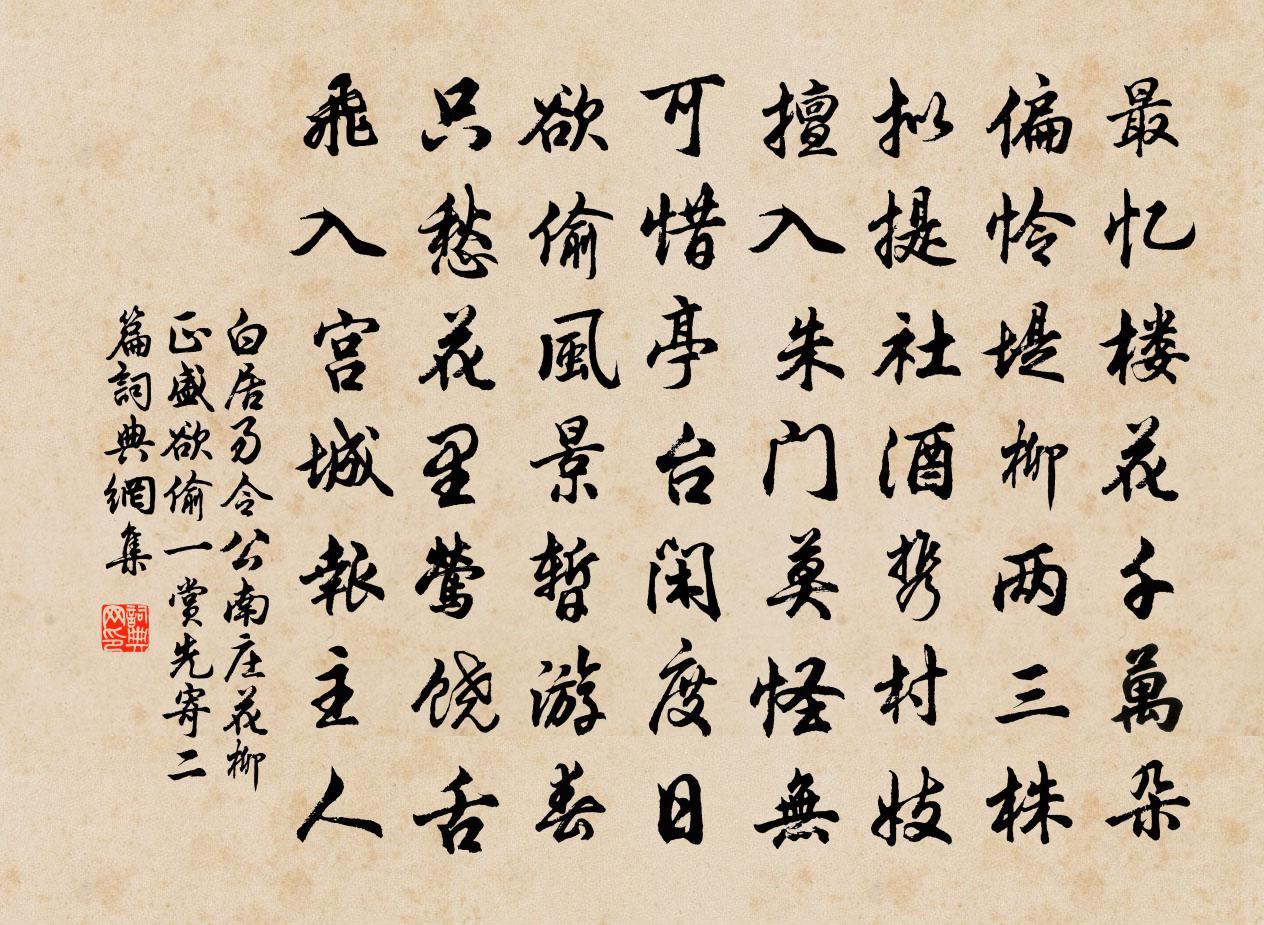 最忆楼花千萬朵
偏怜堤柳两三株
拟提社酒携村妓
擅入朱门莫怪無
可惜亭台闲度日
欲偷風景暫游春
只愁花里莺饶舌
飛入宫城報主人
白居易令公南庄花柳
正盛欲偷一賞先寄二
篇詞典網集
詞典
网印